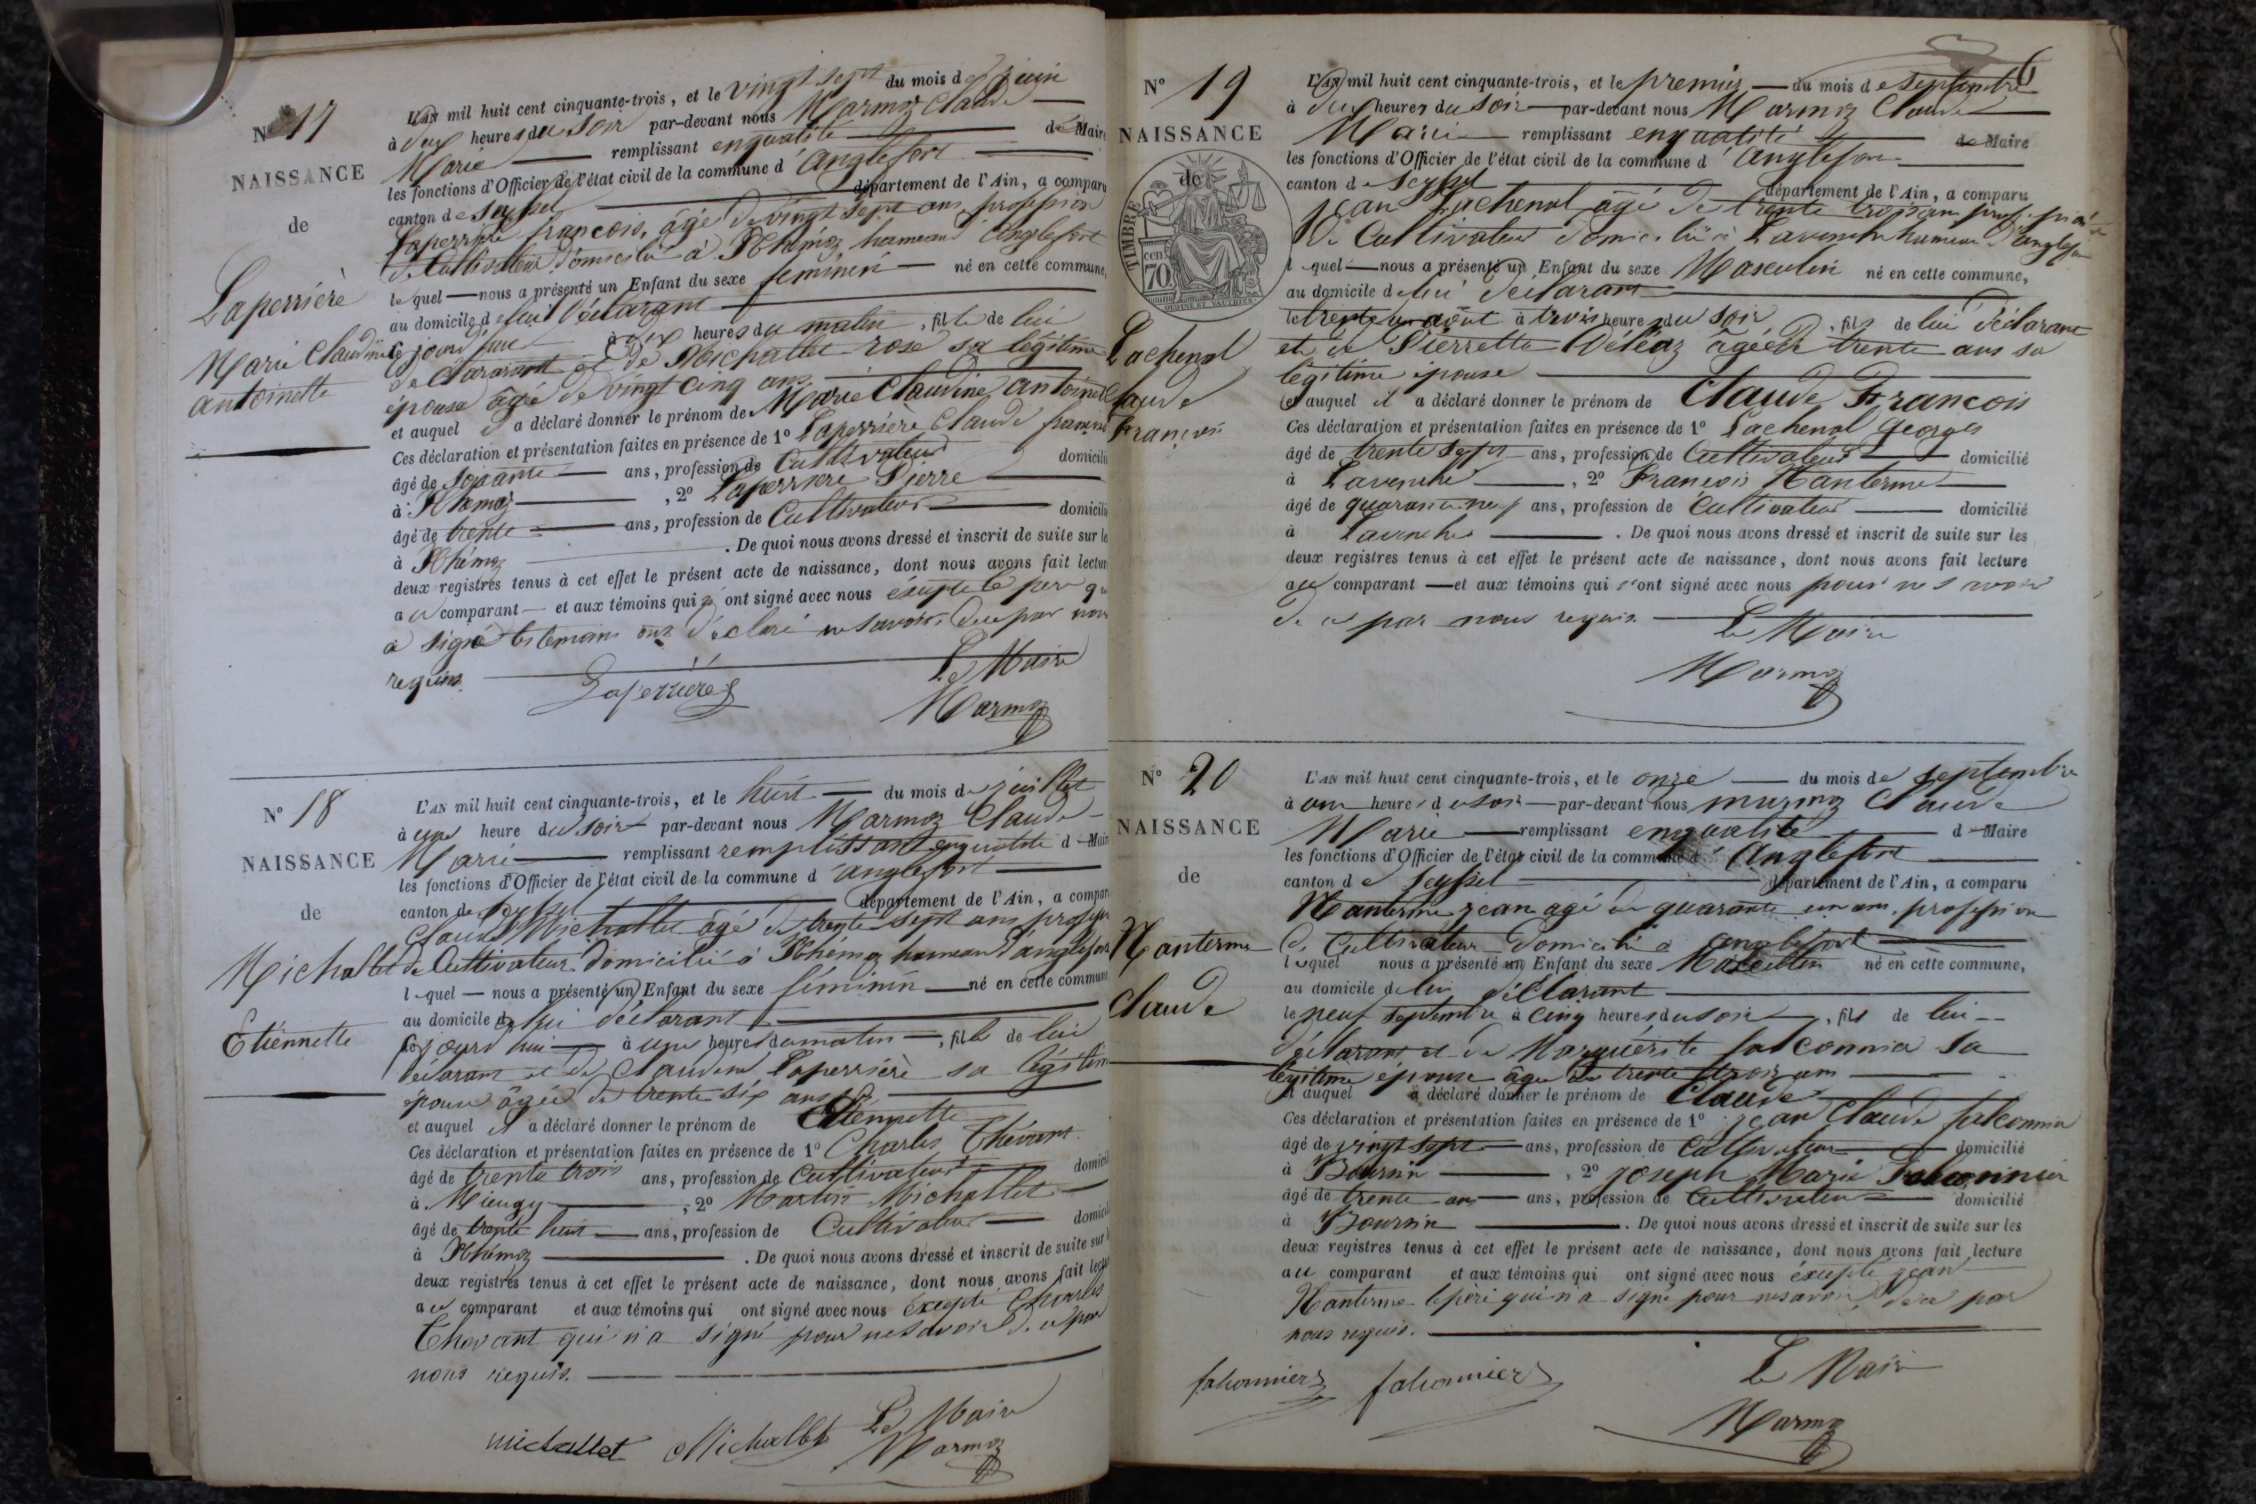 N° 17
NAISSANCE
de
Laperrière
Marie Claudine
antoinette
L'AN mil huit cent cinquante-trois, et le vingt sept du mois de juin
à deux heures du soir par-devant nous Marmoz Claude
Marie remplissant en qualité de Maire
les fonctions d'Officier de l'état civil de la commune d'anglefort
canton de Seyssel département de l'Ain, a comparu
Laperrière françois, âgé de vingt sept ans, profession
de Cultivateur domicilié à Rhémoz hameau d'anglefort
lequel nous a présenté un Enfant du sexe féminin né en cette commune,
au domicile de lui déclarant
le jourd'hui à heures du matin, fille de lui
déclarant et de Michallet rose sa légitime
épouse âgée de vingt cinq ans
et auquel il a déclaré donner le prénom de Marie Claudine antoinette
Ces déclaration et présentation faites en présence de 1° Laperrière Claude
âgé de soixante ans, profession de Cultivateur domicilié
à Rhémoz, 2° Laperrière Pierre
âgé de trente ans, profession de Cultivateur domicilié
à Rhémoz. De quoi nous avons dressé et inscrit de suite sur les
deux registres tenus à cet effet le présent acte de naissance, dont nous avons fait lecture
au comparant et aux témoins qui ont signé avec nous éxcepté le père qui
a signé les temoins ont déclaré ne savoir de ce par nous
requis.
Laperrière
Le Maire
Marmoz
N° 18
NAISSANCE
de
Michallet
Etiennette
L'AN mil huit cent cinquante-trois, et le huit du mois de juillet
à une heure du soir par-devant nous Marmoz Claude
Marie remplissant remplissant en qualité de Maire
les fonctions d'Officier de l'état civil de la commune d'anglefort
canton de Seyssel département de l'Ain, a comparu
Claude Michallet âgé de trente sept ans profession
de Cultivateur domicilié à Rhémoz hameau d'anglefort
lequel nous a présenté un Enfant du sexe féminin né en cette commune
au domicile de lui déclarant
le jourd'hui à une heure du matin, fille de lui
déclarant et de Claudine Laperrière sa légitime
épouse âgée de trente six ans
et auquel il a déclaré donner le prénom de Etiennette
Ces déclaration et présentation faites en présence de 1° Charles Thévant
âgé de trente trois ans, profession de Cultivateur domicilié
à Mieugy, 2° Martin Michallet
âgé de trente huit ans, profession de Cultivateur domicilié
à Rhémoz. De quoi nous avons dressé et inscrit de suite sur les
deux registres tenus à cet effet le présent acte de naissance, dont nous avons fait lecture
au comparant et aux témoins qui ont signé avec nous éxcepté Charles
Thevant qui n'a signé pour ne savoir de ce par
nous requis.
michallet Michallet Le Maire
Marmoz
6
N° 19
NAISSANCE
de
TIMBRE
70 cen
Lachenal
Claude
François
L'AN mil huit cent cinquante-trois, et le premier du mois de septembre
à deux heures du soir par-devant nous Marmoz Claude
Marie remplissant en qualité de Maire
les fonctions d'Officier de l'état civil de la commune d'anglefort
canton de Seyssel département de l'Ain, a comparu
jean Lachenal âgé de trente trois ans profession
de Cultivateur domicilié à Lavenche hameau d'anglefort
lequel nous a présenté un Enfant du sexe Masculin né en cette commune,
au domicile de lui déclarant
le trente un août à trois heures du soir, fils de lui déclarant
et de Pierrette Déléaz âgée de trente ans sa
légitime épouse
et auquel il a déclaré donner le prénom de Claude François
Ces déclaration et présentation faites en présence de 1° Lachenal georges
âgé de trente sept ans, profession de Cultivateur domicilié
à Lavenche, 2° François Nanterme
âgé de quarante neuf ans, profession de Cultivateur domicilié
à Lavenche. De quoi nous avons dressé et inscrit de suite sur les
deux registres tenus à cet effet le présent acte de naissance, dont nous avons fait lecture
au comparant et aux témoins qui n'ont signé avec nous pour ne savoir
de ce par nous requis.
Le Maire
Marmoz
N° 20
NAISSANCE
de
Nanterme
Claude
L'AN mil huit cent cinquante-trois, et le onze du mois de septembre
à une heure du soir par-devant nous marmoz Claude
Marie remplissant en qualité de Maire
les fonctions d'Officier de l'état civil de la commune d'anglefort
canton de Seyssel département de l'Ain, a comparu
Nanterme jean âgé de quarante un ans, profession
de Cultivateur domicilié à anglefort
lequel nous a présenté un Enfant du sexe Masculin né en cette commune,
au domicile de lui déclarant
le neuf septembre à cinq heures du soir, fils de lui
déclarant et de Marguérite falconnier sa
légitime épouse âgée de trente trois ans
et auquel a déclaré donner le prénom de Claude
Ces déclaration et présentation faites en présence de 1° jean Claude falconnier
âgé de vingt sept ans, profession de Cultivateur domicilié
à Boursin, 2° joseph Marie Falconnier
âgé de trente un ans, profession de Cultivateur domicilié
à Boursin. De quoi nous avons dressé et inscrit de suite sur les
deux registres tenus à cet effet le présent acte de naissance, dont nous avons fait lecture
au comparant et aux témoins qui ont signé avec nous éxcepté jean
Nanterme le père qui n'a signé pour ne savoir de ce par
nous requis.
falconnier falconnier Le Maire
Marmoz